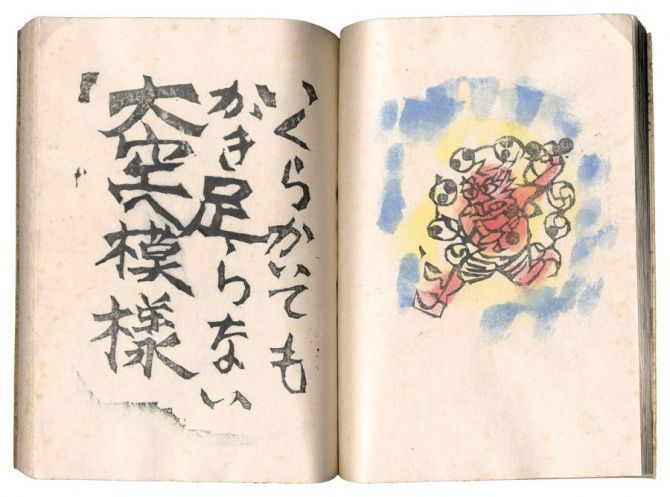 いくらかいても
かき足らない
大空へ模様